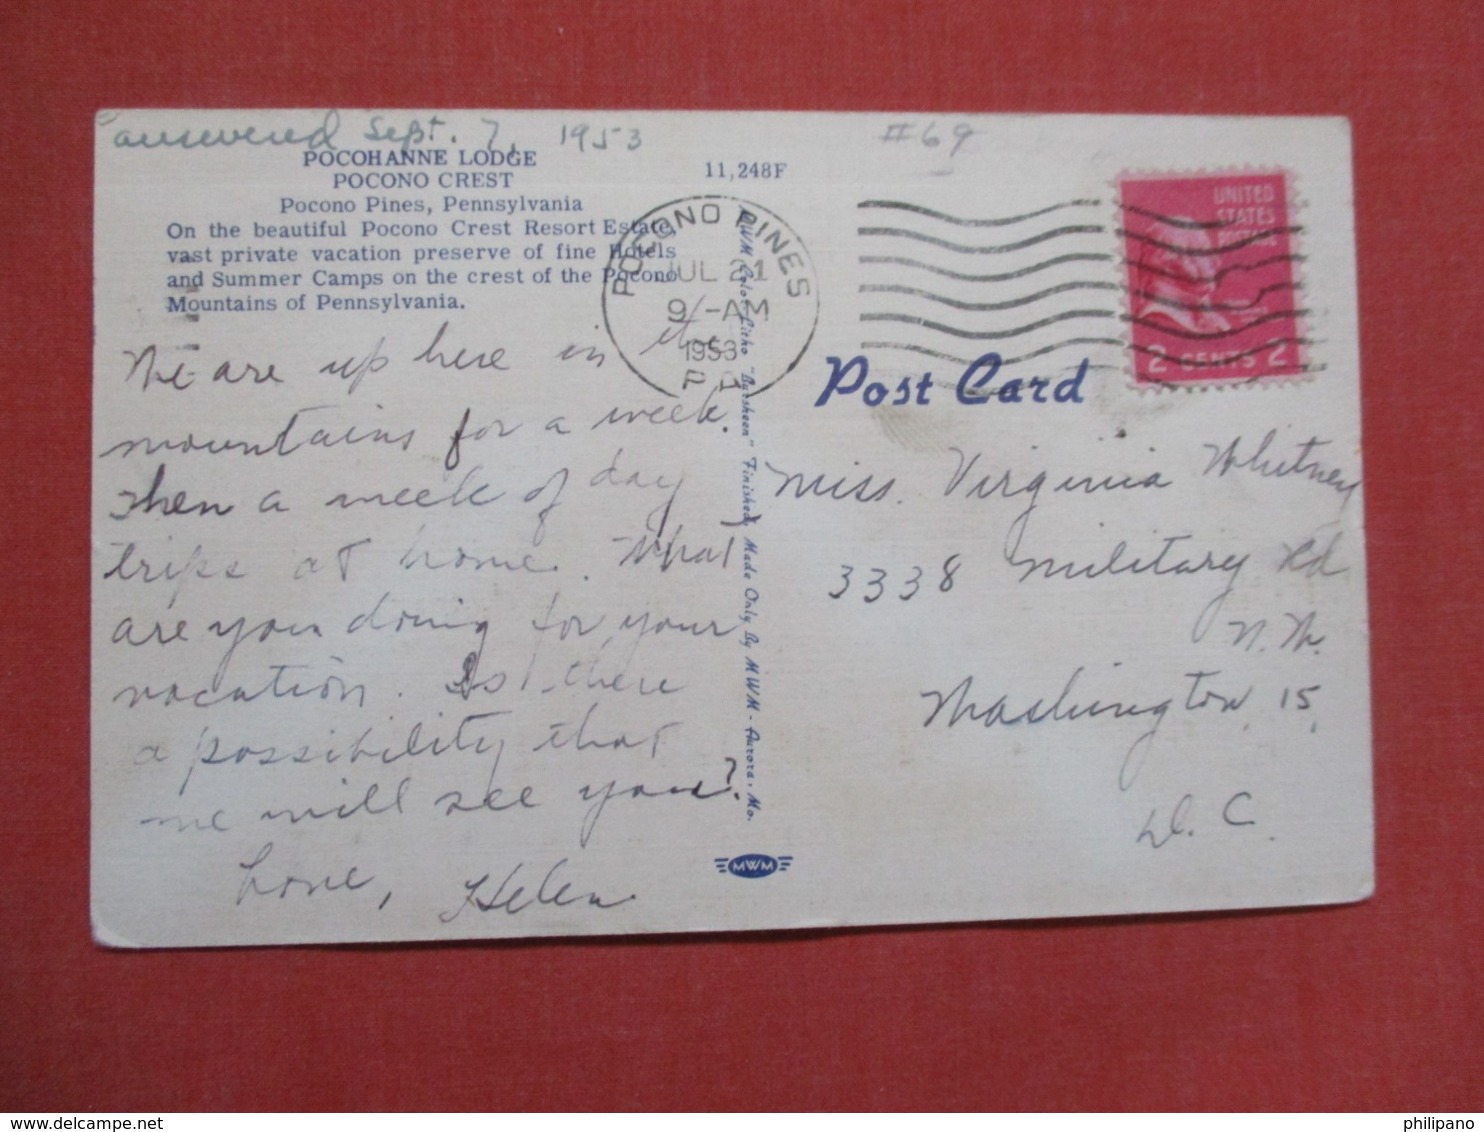 answered Sept. 7, 1953
#69
POCOHANNE LODGE
POCONO CREST
Pocono Pines, Pennsylvania
On the beautiful Pocono Crest Resort Estate,
vast private vacation preserve of fine Hotels
and Summer Camps on the crest of the Pocono
Mountains of Pennsylvania.
11,248F
POCONO PINES
JUL 21
9-AM
1953
PA
UNITED
STATES
POSTAGE
2 CENTS 2
Post Card
We are up here in the
mountains for a week.
Then a week of day
trips at home. What
are you doing for your
vacation. Is there
a possibility that
we will see you?
Love, Helen
MWM Color-Litho "Bursheen" Finished, Made Only By MWM - Aurora, Mo.
MWM
Miss. Virginia Whitney
3338 Military Rd
N.W.
Washington 15,
D. C.
www.delcampe.net
philipano